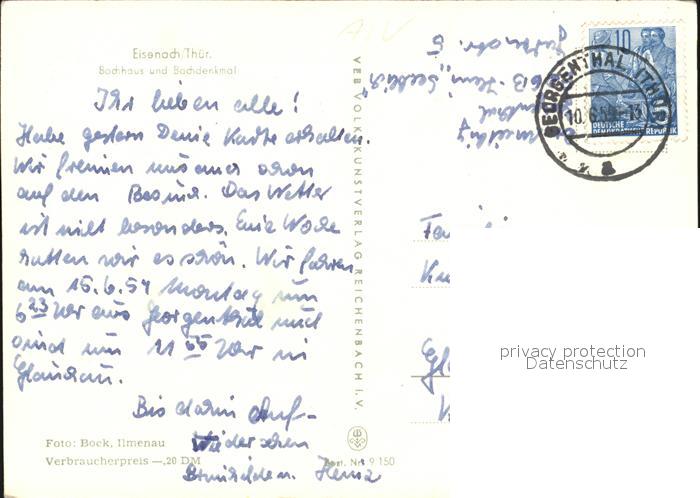 Eisenach/Thür.
Bachhaus und Bachdenkmal
Ihr lieben alle!
Habe gestern Deine Karte erhalten.
Wir freuen uns schon
auf den Besuch. Das Wetter
ist nicht besonders. Eine Woche
hatten wir es schön. Wir fahren
am 15.6.59 Montag um
6 23 Uhr aus Georgenthal und
sind um 11 55 Uhr in
Glauchau.
Bis dahin Auf-
Wiedersehen
Heinz
Foto: Bock, Ilmenau
Verbraucherpreis —,20 DM
Best. Nr. 9 150
VEB VOLKSKUNSTVERLAG REICHENBACH I. V.
GEORGENTHAL (THÜR)
10
DEUTSCHE
DEMOKRATISCHE REPUBLIK
privacy protection
Datenschutz